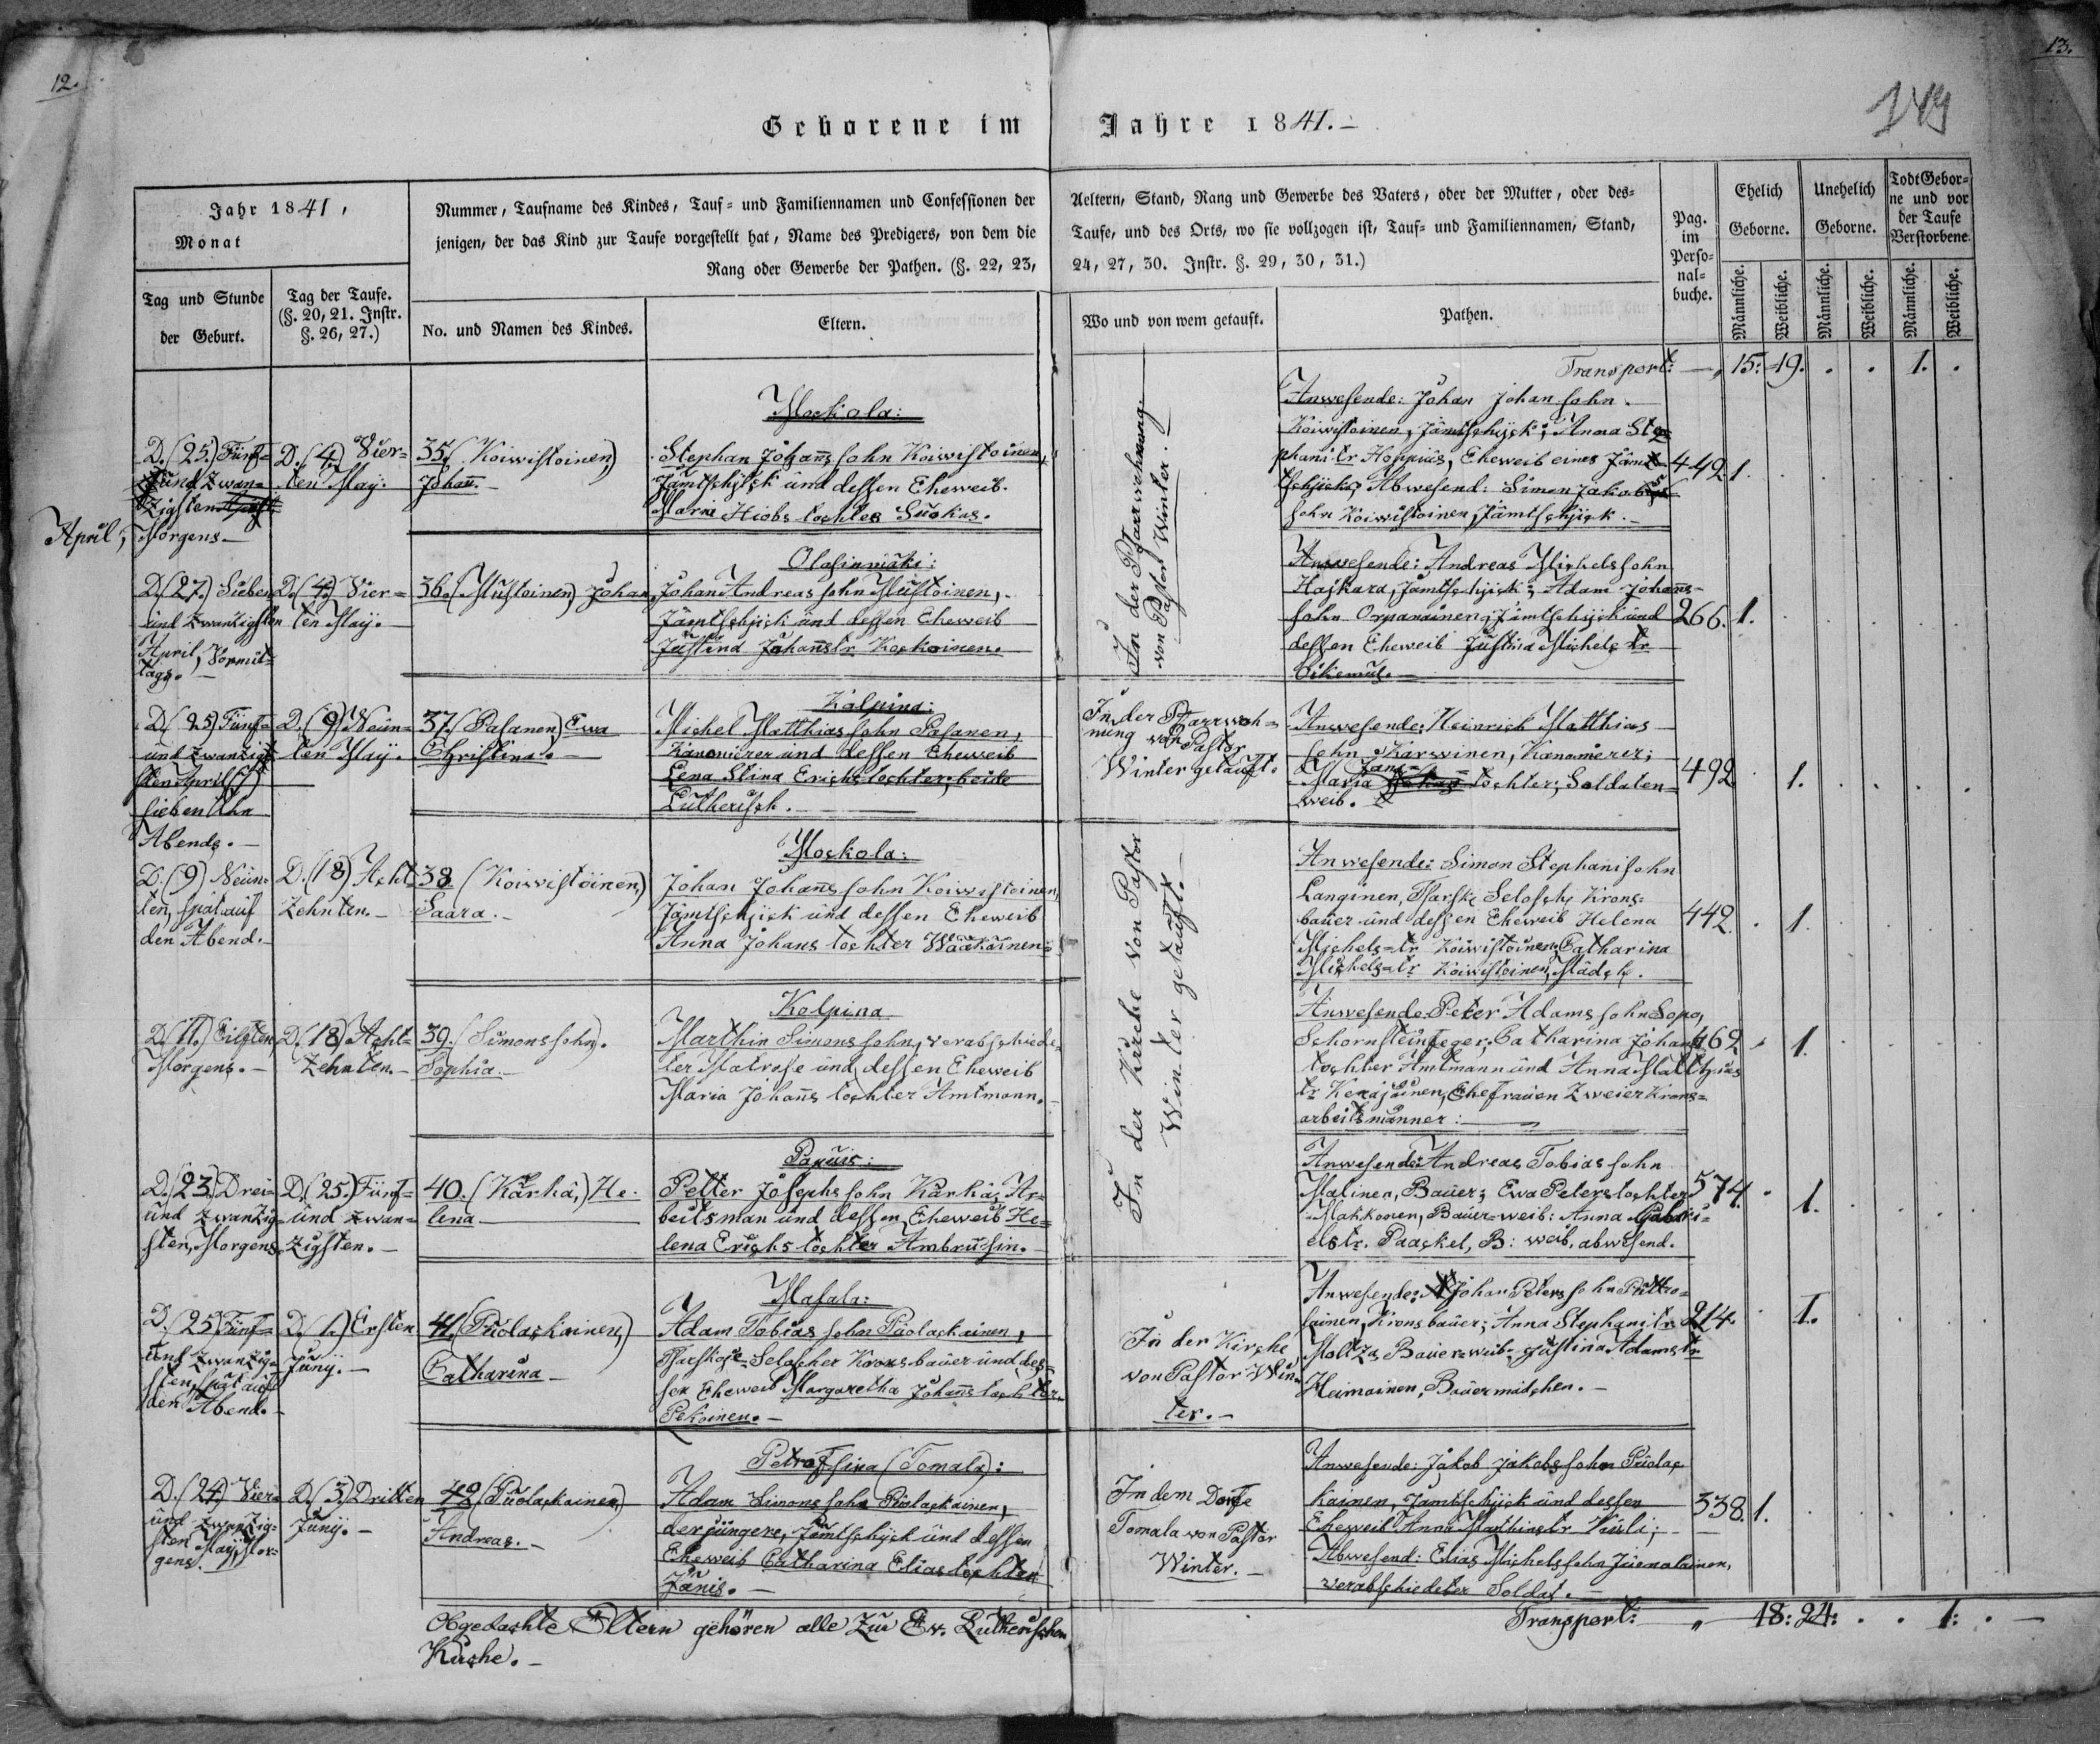 12.
13.
149
Geborene im Jahre 1841.–
Jahr 1841,
Monat
Tag und Stunde
der Geburt.
Tag der Taufe.
(§. 20, 21. Instr.
§. 26, 27.)
Nummer, Taufname des Kindes, Tauf- und Familiennamen und Confessionen der
jenigen, der das Kind zur Taufe vorgestellt hat, Name des Predigers, von dem die
Rang oder Gewerbe der Pathen. (§. 22, 23,
No. und Namen des Kindes.
Eltern.
Aeltern, Stand, Rang und Gewerbe des Vaters, oder der Mutter, oder des-
Taufe, und des Orts, wo sie vollzogen ist, Tauf- und Familiennamen, Stand,
24, 27, 30. Instr. §. 29, 30, 31.)
Wo und von wem getauft.
Pathen.
Pag.
im
Perso-
nal-
buche.
Ehelich
Geborne.
Unehelich
Geborne.
Todt Gebor-
ne und vor
der Taufe
Verstorbene.
Männliche.
Weibliche.
Männliche.
Weibliche.
Männliche.
Weibliche.
Transport: — „ 15: 19. . . 1. .
Moskola:
D. (25.) Fünf-
und Zwan-
zigsten
April, Morgens.–
D. (4.) Vier-
ten May.
35. (Koiwistoinen,)
Johan.–
Stephan Johans sohn Koiwistoinen,
Jämtschjick und dessen Eheweib.
Maria Hiobs tochter Suokas.
In der Pfarrwohnung.
von Pastor Winter.
Anwesende: Johan Johan sohn.
Koiwistoinen, Jämtschjick; Anna Ste-
phani-tr Hoppius, Eheweib eines Jämt-
schjicks, Abwesend: Simon Jakobs
sohn Koiwistoinen, Jämtschjick.–
442 1.
Olasinmäki:
D. (27.) Sieben
und Zwanzigsten
April, Vormit-
tags.–
D. (4.) Vier-
ten May.
36. (Mustoinen,) Johan.
Johan Andreas sohn Mustoinen,
Jämtschjick und dessen Eheweib
Justina Johans tr Koskoinen.
Anwesende: Andreas Michels sohn
Haskara, Jämtschjick; Adam Johans-
sohn Orpanainen, Jämtschjick und
dessen Eheweib Justina Michels tr
Oikemus.
266. 1.
Kolpina:
D. (25) Fünf-
und Zwanzig-
sten April (7)
sieben Uhr
Abends.–
D. (9) Neun-
ten May.
37. (Pasanen,) Ewa
Christina.–
Michel Matthias sohn Pasanen,
Kanonierer und dessen Eheweib
Lena Stina Erichs tochter, beide
Lutherisch.
In der Pfarrwoh-
nung von Pastor
Winter getauft.
Anwesende: Heinrich Matthias
sohn Karwinen, Kanonierer;
Maria Jans- tochter, Soldaten-
weib.
492 1.
Moskola:
D. (9) Neun-
ten, spät auf
den Abend.–
D. (18) Acht-
zehnten.–
38 (Koiwistoinen,)
Saara.–
Johan Johans sohn Koiwistoinen,
Jämtschjick und dessen Eheweib
Anna Johans tochter Wääränen.
In der Kirche von Pastor
Winter getauft.–
Anwesende: Simon Stephani sohn
Langinen, Zarsk. Selosch. Krons-
bauer und dessen Eheweib Helena
Michels-tr Koiwistoinen, Catharina
Michels-tr Koiwistoinen, Mädch.
442. 1.
Kolpina
D. (11.) Eilften,
Morgens.–
D. (18) Acht-
zehnten.–
39. (Simonssohn).
Sophia.–
Marthin Simons sohn, verabschiede-
ter Matrose und dessen Eheweib
Maria Johans tochter Amtmann.–
Anwesende Peter Adams sohn Sopo,
Schornsteinfeger, Catharina Johans
tochter Amtmann und Anna Matthias
tr Kerajainen, Ehefrauen zweier Krons-
arbeitsmänner:
462 1.
Papuis:
D. (23) Drei-
und zwanzig-
sten, Morgens
D. (25.) Fünf-
und Zwan-
zigsten.–
40. (Kärhä,) He-
lena
Petter Josephs sohn Kärhä, Ar-
beitsman und dessen Eheweib He-
lena Erichs tochter Ambrusin.–
Anwesende: Andreas Tobias sohn
Malinen, Bauer; Ewa Peters tochter
Mahkonen, Bauer-weib: Anna Gabri-
els tr. Paackel, B: weib, abwesend.
574. 1.
Masala:
D. (25) Fünf-
und zwanzig-
sten, spät auf
den Abend.–
D. (1.) Ersten
Juny.–
41. (Puolackainen,)
Catharina
Adam Tobias sohn Puolackainen,
Zarskoje-Seloscher Kronsbauer und des-
sen Eheweib Margaretha Johans tochter
Pekoinen.–
In der Kirche
von Pastor Win-
ter.–
Anwesende: Johan Peters sohn Puttro-
lainen, Kronsbauer; Anna Stephani tr
Moltza, Bauer-weib, Justina Adams tr
Heimainen, Bauermädchen.–
214. 1.
Petrofsina (Tomala):
D. (24) Vier-
und zwanzig-
sten May, Mor-
gens.
D. (3.) Dritten
Juny.–
42 (Puolackainen,)
Andreas.–
Adam Simons sohn Puolackainen,
der jüngere, Jämtschjick und dessen
Eheweib Catharina Elias tochter
Jänis.–
In dem Dorfe
Tomala von Pastor
Winter.–
Anwesende: Jakob Jakobs sohn Puolac-
kainen, Jämtschjick und dessen
Eheweib Anna Marthins tr Kuuli;
Abwesend: Elias Michels sohn Juenalainen,
verabschiedeter Soldat.–
338. 1.
Obgedachte Eltern gehören alle zur Ev. Lutherischen
Kirche.–
Transport: — „ 18: 24: . . 1: .